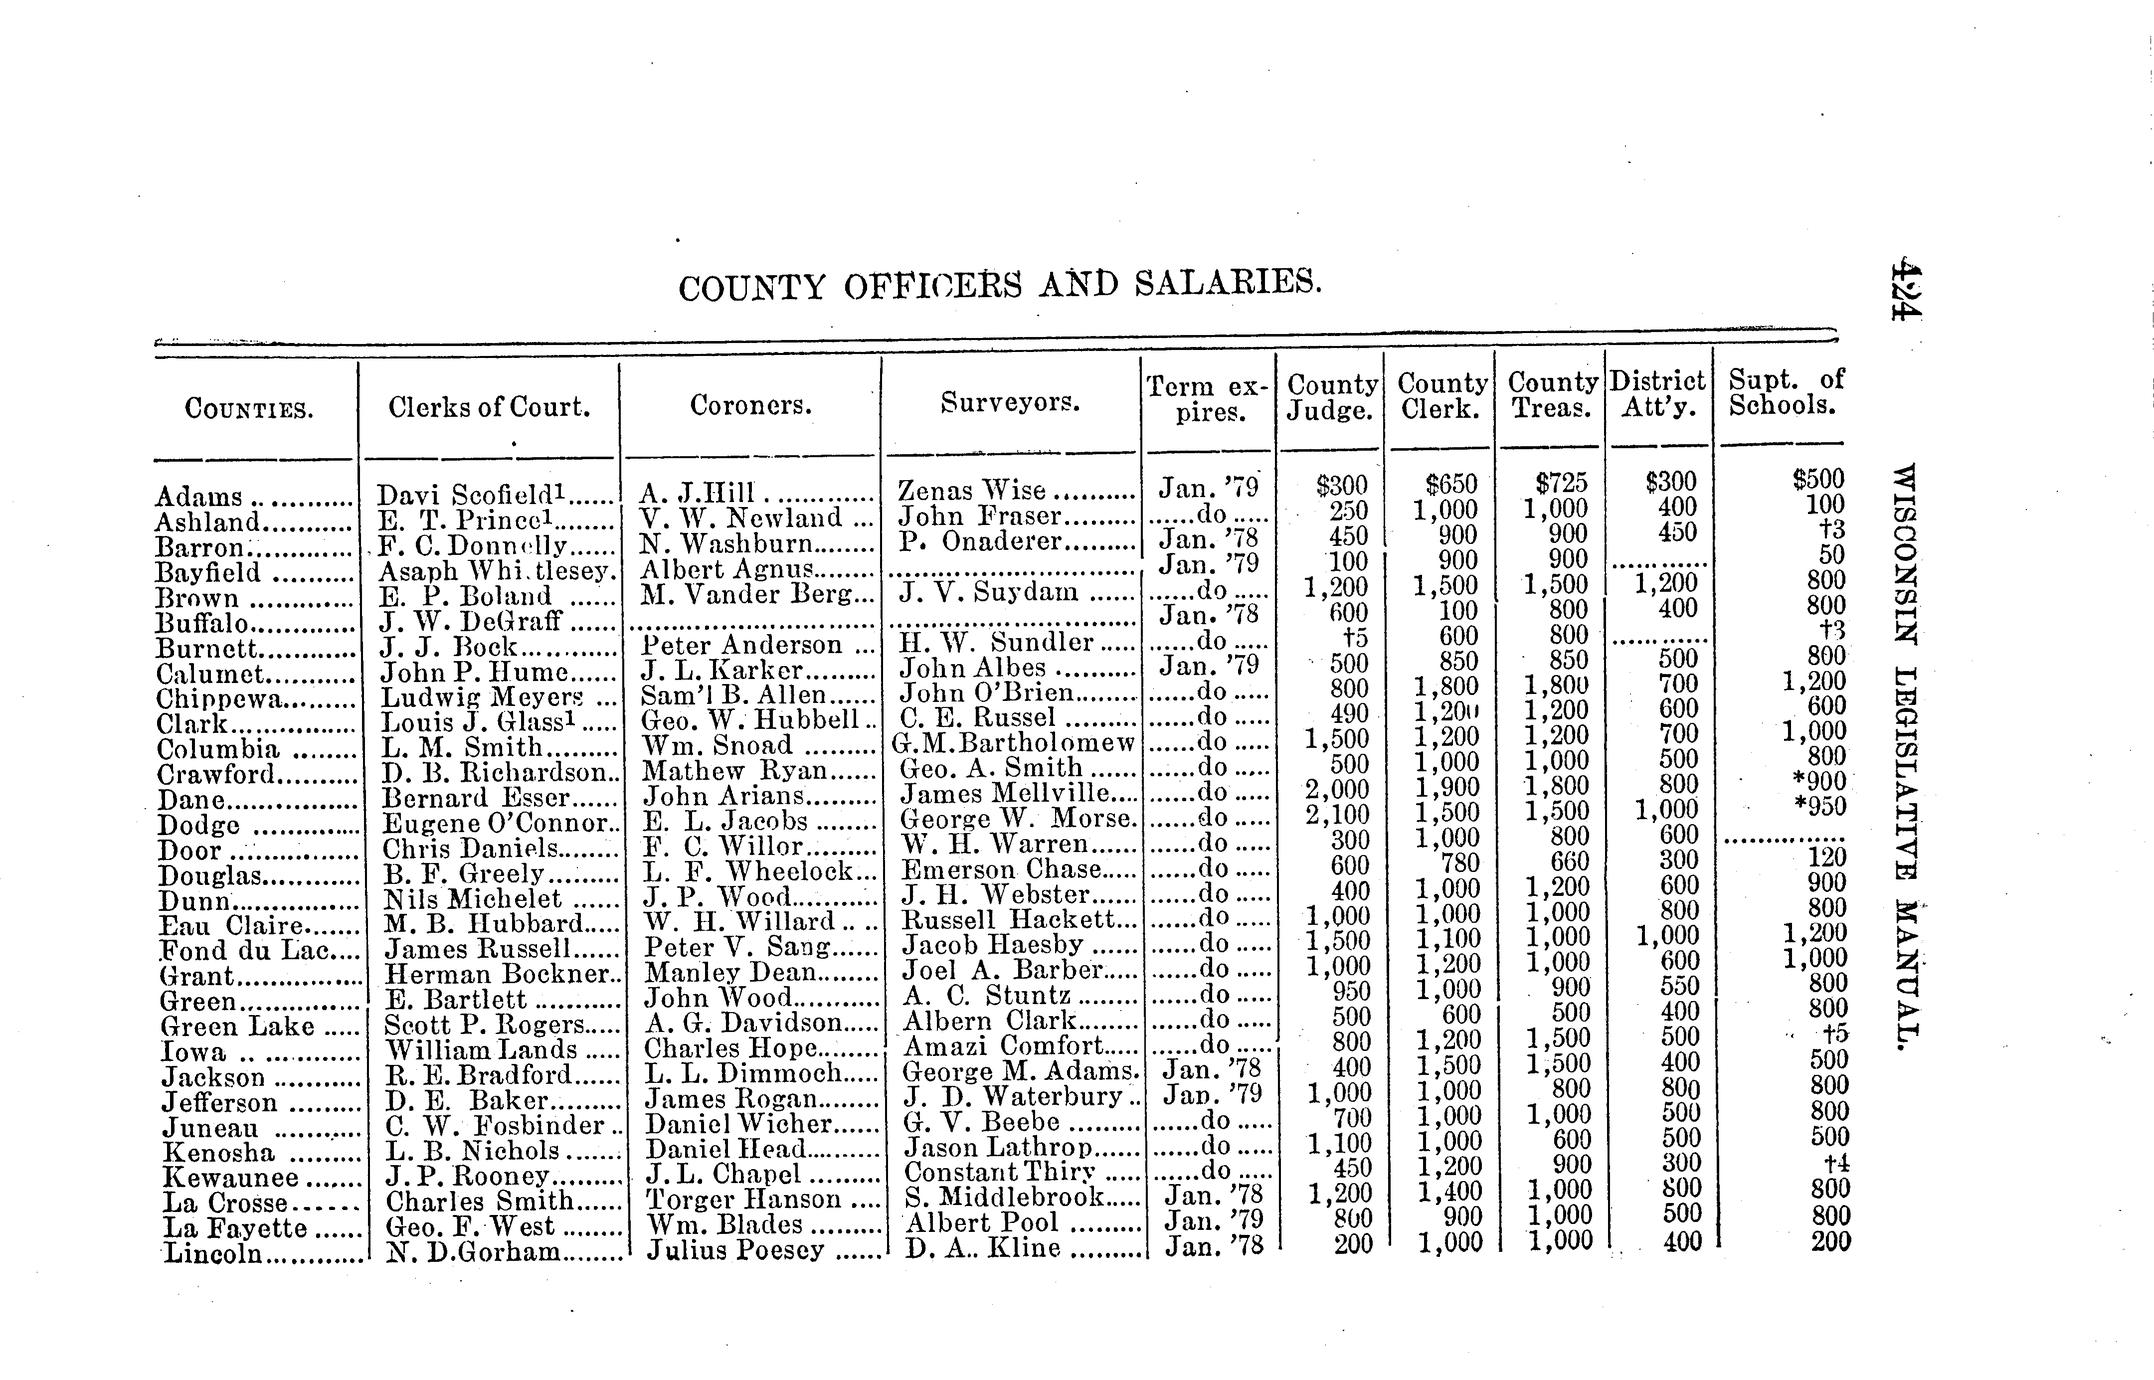 COUNTY OFFICERS AND SALARIES.
424
WISCONSIN LEGISLATIVE MANUAL.
COUNTIES. Clerks of Court. Coroners. Surveyors. Term expires. County Judge. County Clerk. County Treas. District Att'y. Supt. of Schools.
Adams .. ........... Davi Scofield1...... A. J.Hill . ............ Zenas Wise .......... Jan. '79 $300 $650 $725 $300 $500
Ashland........... E. T. Prince1........ V. W. Newland ... John Fraser......... ......do ..... 250 1,000 1,000 400 100
Barron............. F. C. Donnelly...... N. Washburn........ P. Onaderer......... Jan. '78 450 900 900 450 †3
Bayfield .......... Asaph Whi.tlesey. Albert Agnus........ .............................. Jan. '79 100 900 900 ............ 50
Brown ............. E. P. Boland ...... M. Vander Berg... J. V. Suydam ...... ......do ..... 1,200 1,500 1,500 1,200 800
Buffalo............. J. W. DeGraff ...... .............................. .............................. Jan. '78 600 100 800 400 800
Burnett............ J. J. Bock............ Peter Anderson ... H. W. Sundler ..... ......do ..... †5 600 800 ............ †3
Calumet........... John P. Hume...... J. L. Karker......... John Albes .......... Jan. '79 500 850 850 500 800
Chippewa......... Ludwig Meyers ... Sam'l B. Allen...... John O'Brien......... ......do ..... 800 1,800 1,800 700 1,200
Clark................ Louis J. Glass1 ..... Geo. W. Hubbell .. C. E. Russel ......... ......do ..... 490 1,200 1,200 600 600
Columbia ........ L. M. Smith......... Wm. Snoad ......... G.M.Bartholomew ......do ..... 1,500 1,200 1,200 700 1,000
Crawford.......... D. B. Richardson.. Mathew Ryan...... Geo. A. Smith ...... ......do ..... 500 1,000 1,000 500 800
Dane................ Bernard Esser...... John Arians......... James Mellville.... ......do ..... 2,000 1,900 1,800 800 *900
Dodge ............. Eugene O'Connor.. E. L. Jacobs ........ George W. Morse. ......do ..... 2,100 1,500 1,500 1,000 *950
Door ................ Chris Daniels........ F. C. Willor......... W. H. Warren...... ......do ..... 300 1,000 800 600 ...............
Douglas............ B. F. Greely......... L. F. Wheelock... Emerson Chase..... ......do ..... 600 780 660 300 120
Dunn................ Nils Michelet ...... J. P. Wood........... J. H. Webster...... ......do ..... 400 1,000 1,200 600 900
Eau Claire....... M. B. Hubbard..... W. H. Willard .. .. Russell Hackett... ......do ..... 1,000 1,000 1,000 800 800
Fond du Lac.... James Russell...... Peter V. Sang...... Jacob Haesby ...... ......do ..... 1,500 1,100 1,000 1,000 1,200
Grant................ Herman Bockner.. Manley Dean........ Joel A. Barber..... ......do ..... 1,000 1,200 1,000 600 1,000
Green............... E. Bartlett ........... John Wood........... A. C. Stuntz ........ ......do ..... 950 1,000 900 550 800
Green Lake ..... Scott P. Rogers..... A. G. Davidson..... Albern Clark........ ......do ..... 500 600 500 400 800
Iowa .. ............ William Lands ..... Charles Hope........ Amazi Comfort..... ......do ..... 800 1,200 1,500 500 †5
Jackson ........... R. E. Bradford...... L. L. Dimmoch..... George M. Adams. Jan. '78 400 1,500 1,500 400 500
Jefferson ......... D. E. Baker.......... James Rogan........ J. D. Waterbury .. Jan. '79 1,000 1,000 800 800 800
Juneau ........... C. W. Fosbinder .. Daniel Wicher...... G. V. Beebe ......... ......do ..... 700 1,000 1,000 500 800
Kenosha ......... L. B. Nichols ....... Daniel Head.......... Jason Lathrop...... ......do ..... 1,100 1,000 600 500 500
Kewaunee ....... J. P. Rooney......... J. L. Chapel ......... Constant Thiry ..... ......do ..... 450 1,200 900 300 †4
La Crosse....... Charles Smith...... Torger Hanson .... S. Middlebrook..... Jan. '78 1,200 1,400 1,000 800 800
La Fayette ...... Geo. F. West ........ Wm. Blades ......... Albert Pool ......... Jan. '79 800 900 1,000 500 800
Lincoln............ N. D.Gorham........ Julius Poesey ...... D. A.. Kline ......... Jan. '78 200 1,000 1,000 400 200